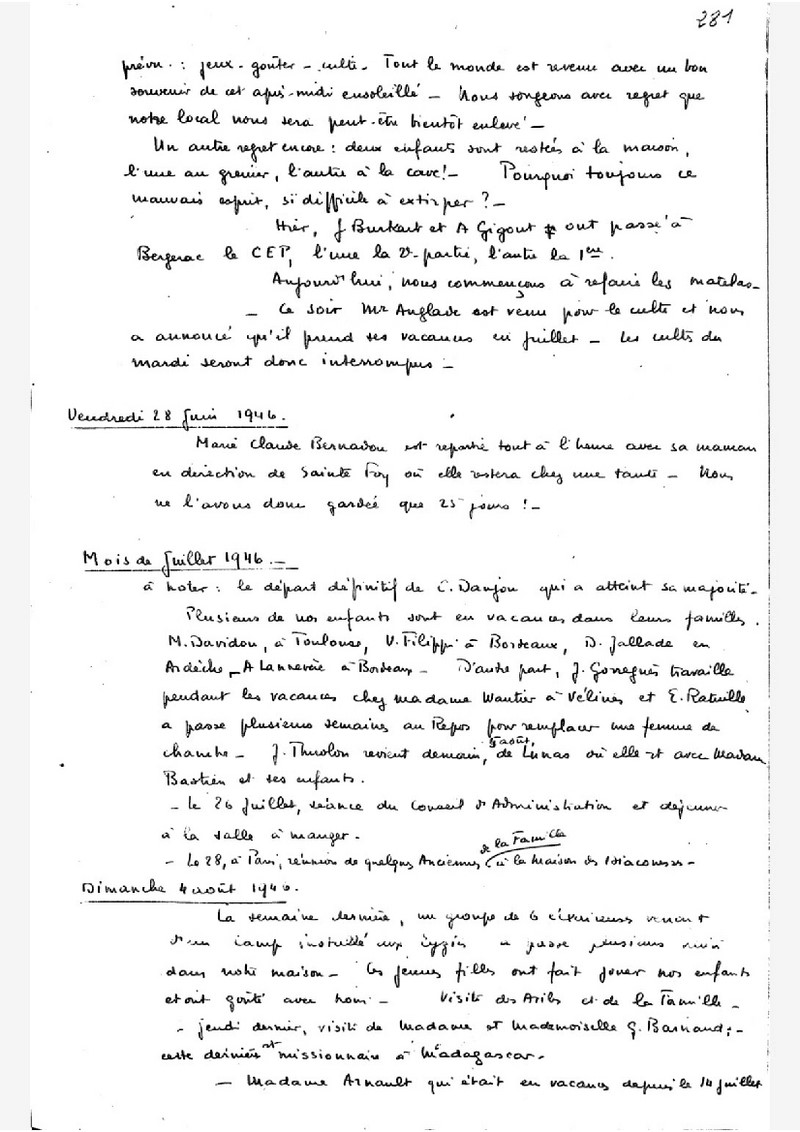 281
prévu. : jeux - goûter - culte - Tout le monde est revenu avec un bon
souvenir de cet après-midi ensoleillé - Nous songeons avec regret que
notre local nous sera peut-être bientôt enlevé -
Un autre regret encore : deux enfants sont restées à la maison,
l'une au grenier, l'autre à la cave ! - Pourquoi toujours ce
mauvais esprit, si difficile à extirper ? -
Hier, J Burkart et A Gigout ont passé à
Bergerac le CEP, l'une la 2e partie, l'autre la 1ère.
Aujourd'hui, nous commençons à refaire les matelas -
- Ce soir Mr Anglade est venu pour le culte et nous
a annoncé qu'il prend ses vacances en Juillet - Les cultes du
mardi seront donc interrompus -
Vendredi 28 Juin 1946.
Marie Claude Bernadou est repartie tout à l'heure avec sa maman
en direction de Sainte Foy où elle restera chez une tante - Nous
ne l'avons donc gardée que 25 jours ! -
Mois de Juillet 1946. -
à noter : le départ définitif de C. Danjon qui a atteint sa majorité -
Plusieurs de nos enfants sont en vacances dans leurs familles.
M. Davidou, à Toulouse, V. Filippi à Bordeaux, D. Jallade en
Ardèche - A Lannevère à Bordeaux - D'autre part, J. Gonegnès travaille
pendant les vacances chez madame Wautier à Vélines et E. Ratuille
a passé plusieurs semaines au Repos pour remplacer une femme de
chambre - J. Thurolon revient demain, 5 août, de Lunas où elle est avec Madame
Bastien et ses enfants.
- le 26 Juillet, séance du Conseil d'Administration et déjeuner
à la salle à manger -
- Le 28, à Paris, réunion de quelques Anciennes de la Famille à la Maison des Diaconesses -
Dimanche 4 août 1946.
La semaine dernière, un groupe de 6 éclaireuses venant
d'un camp installé aux Eyzies a passé plusieurs nuits
dans notre maison - Ces jeunes filles ont fait jouer nos enfants
et ont goûté avec nous - Visite des Asiles et de la Famille -
- jeudi dernier, visite de Madame et Mademoiselle G. Barnaud ; -
cette dernière est missionnaire à Madagascar -
- Madame Arnault qui était en vacances depuis le 14 juillet